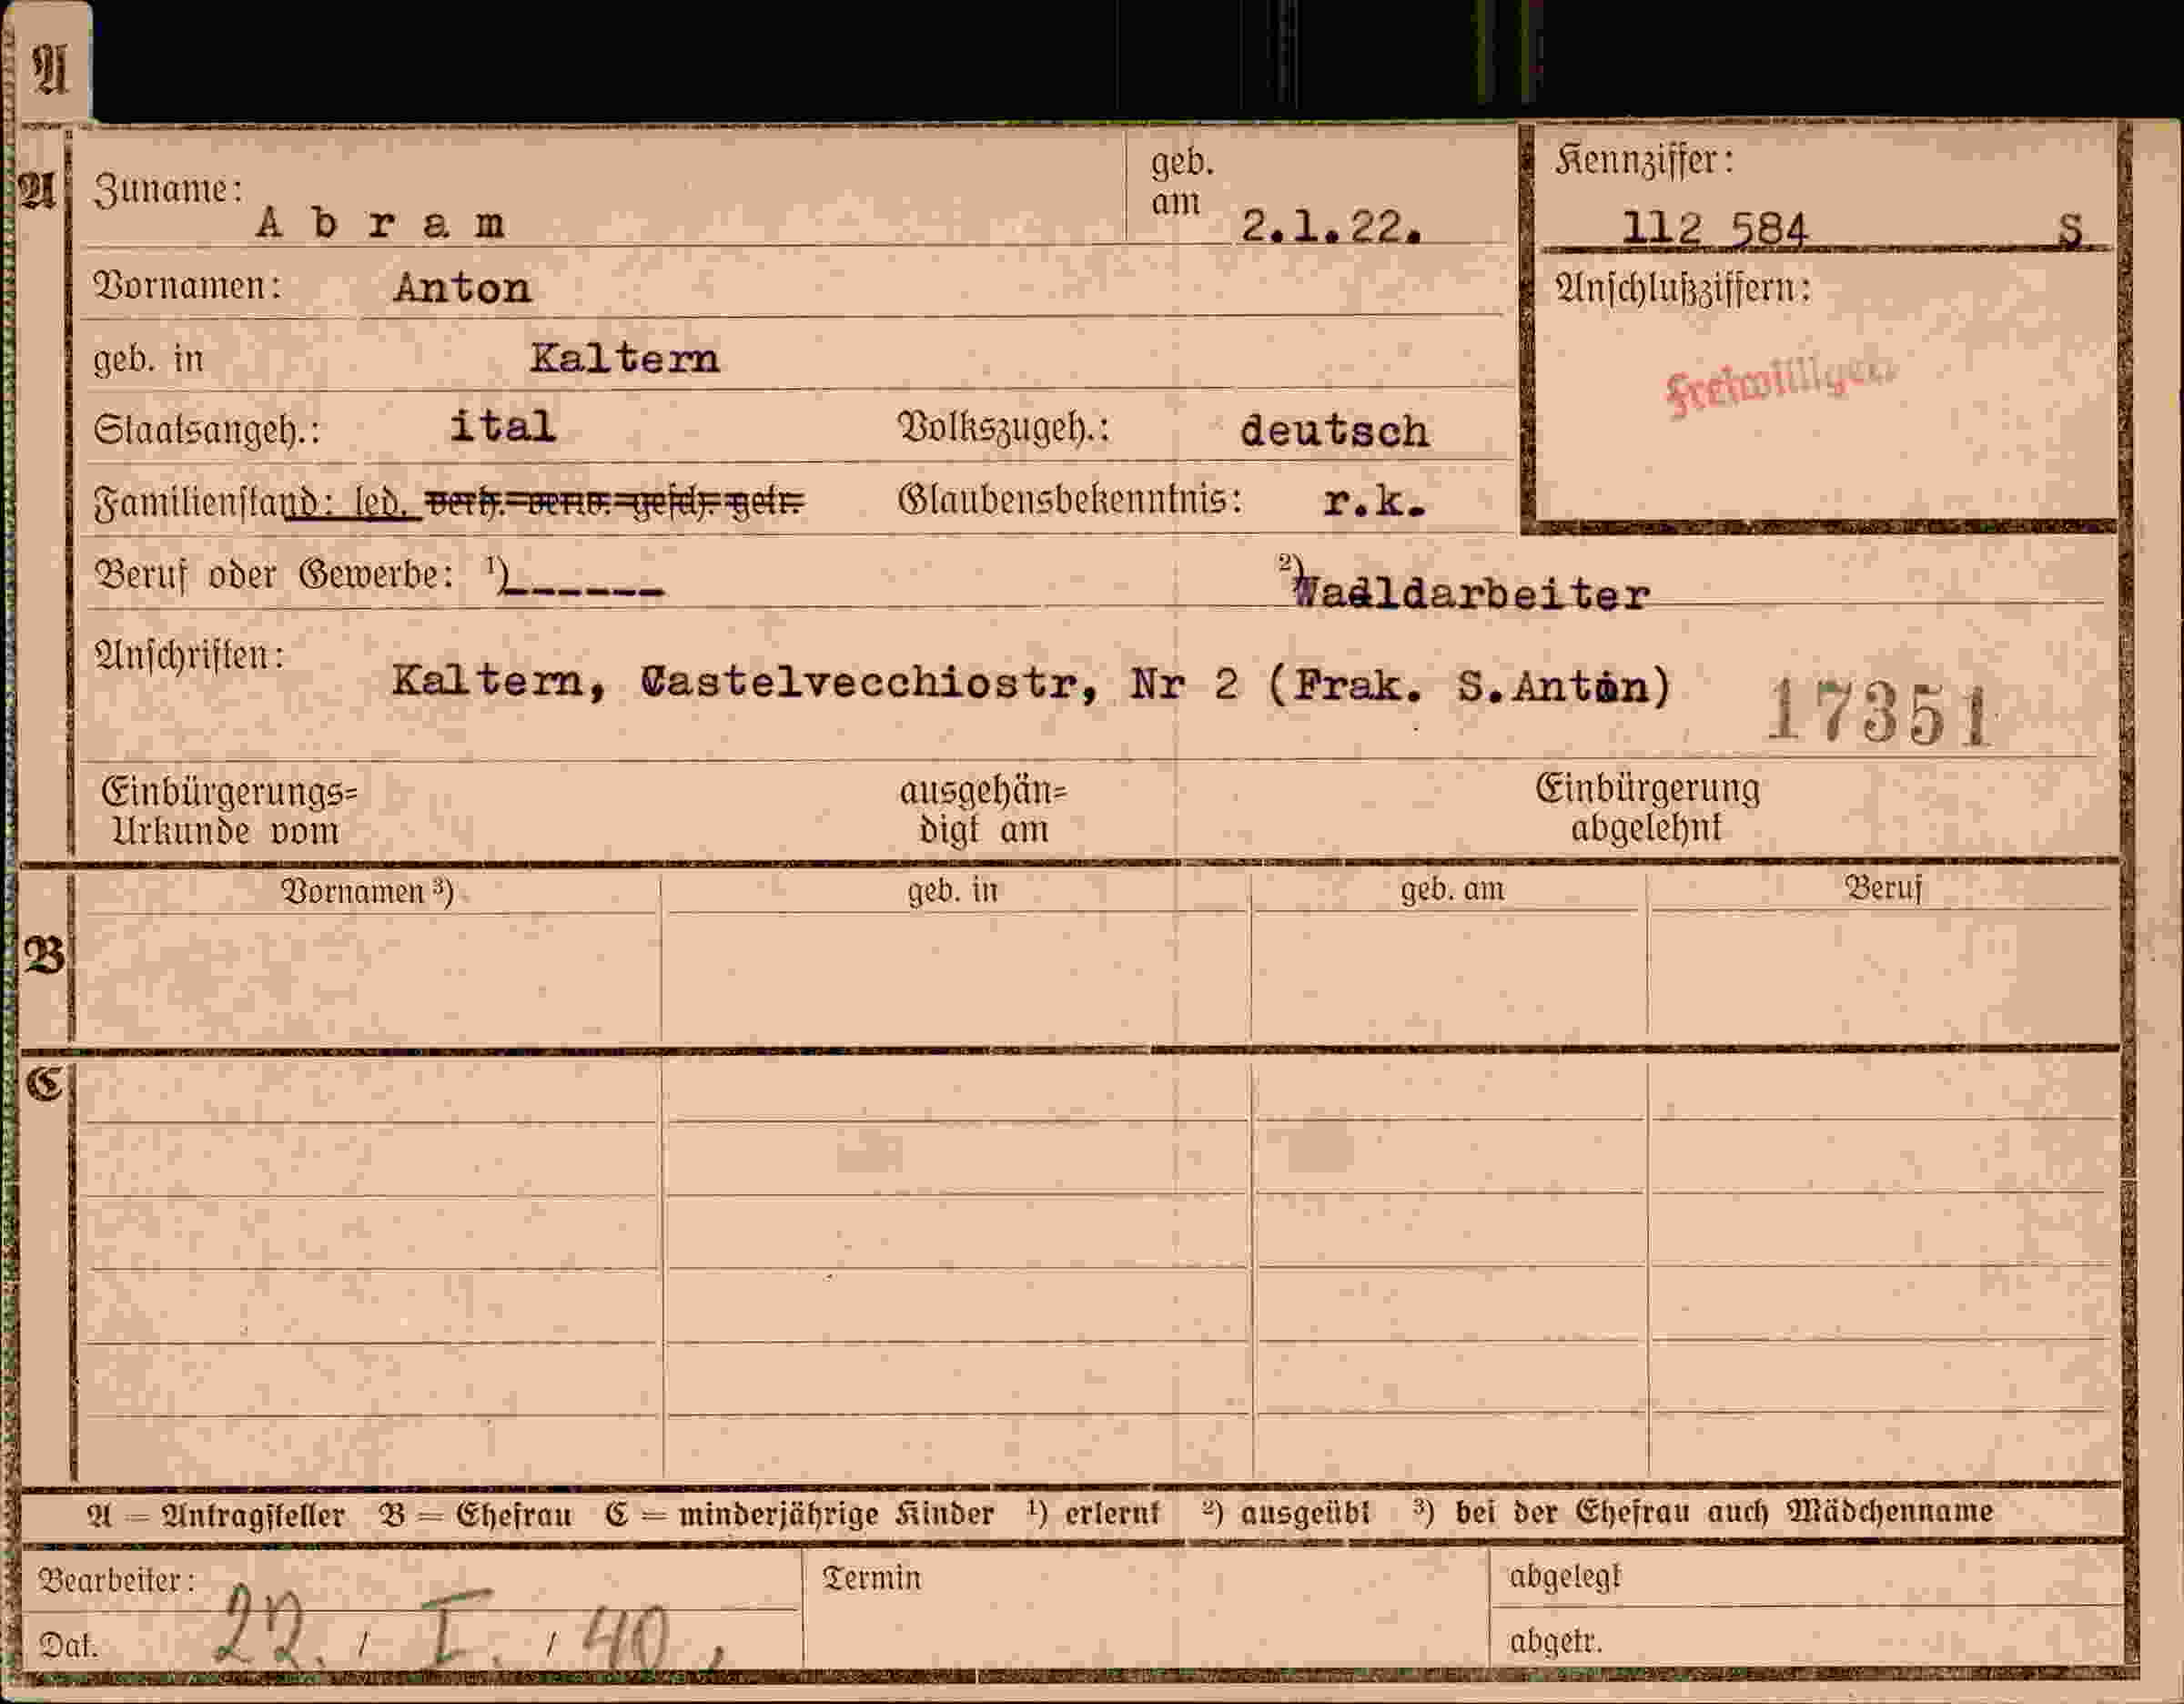 A
A Zuname: Abram geb. am 2.1.22. Kennziffer: 112 584 S
Vornamen: Anton Anschlußziffern:
geb. in Kaltern Freiwilligen
Staatsangeh.: ital Volkszugeh.: deutsch
Familienstand: led. verh. verw. gesch. getr. Glaubensbekenntnis: r.k.
Beruf oder Gewerbe: ¹)------ ²) Waldarbeiter
Anschriften: Kaltern, Castelvecchiostr, Nr 2 (Frak. S.Anton) 17351
Einbürgerungs= ausgehän= Einbürgerung
Urkunde vom digt am abgelehnt
Vornamen ³) geb. in geb. am Beruf
B
C
A = Antragsteller B = Ehefrau C = minderjährige Kinder ¹) erlernt ²) ausgeübt ³) bei der Ehefrau auch Mädchenname
Bearbeiter: Termin abgelegt
Dat. 22. / I. / 40. abgetr.